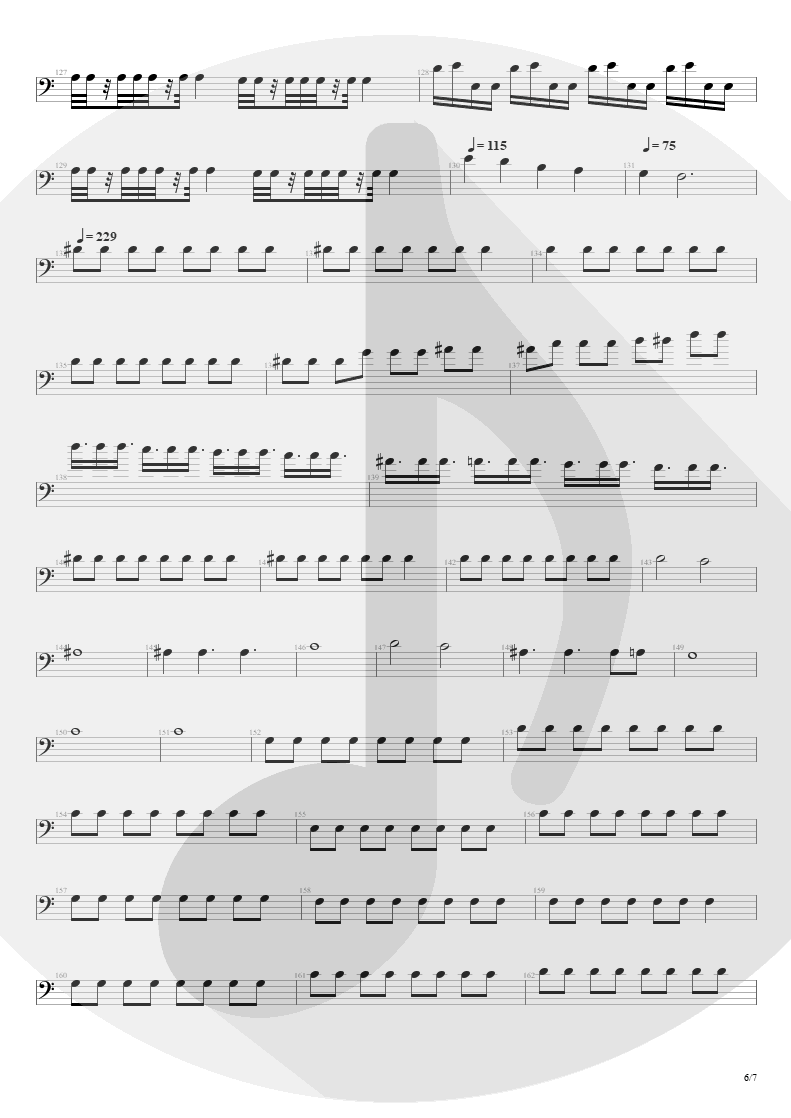 127 128
♩ = 115 ♩ = 75
129 130 131
♩ = 229
134
135 137
138 139
142 143
146 147 149
150 151 152 153
154 155 156
157 158 159
160 161 162
6/7